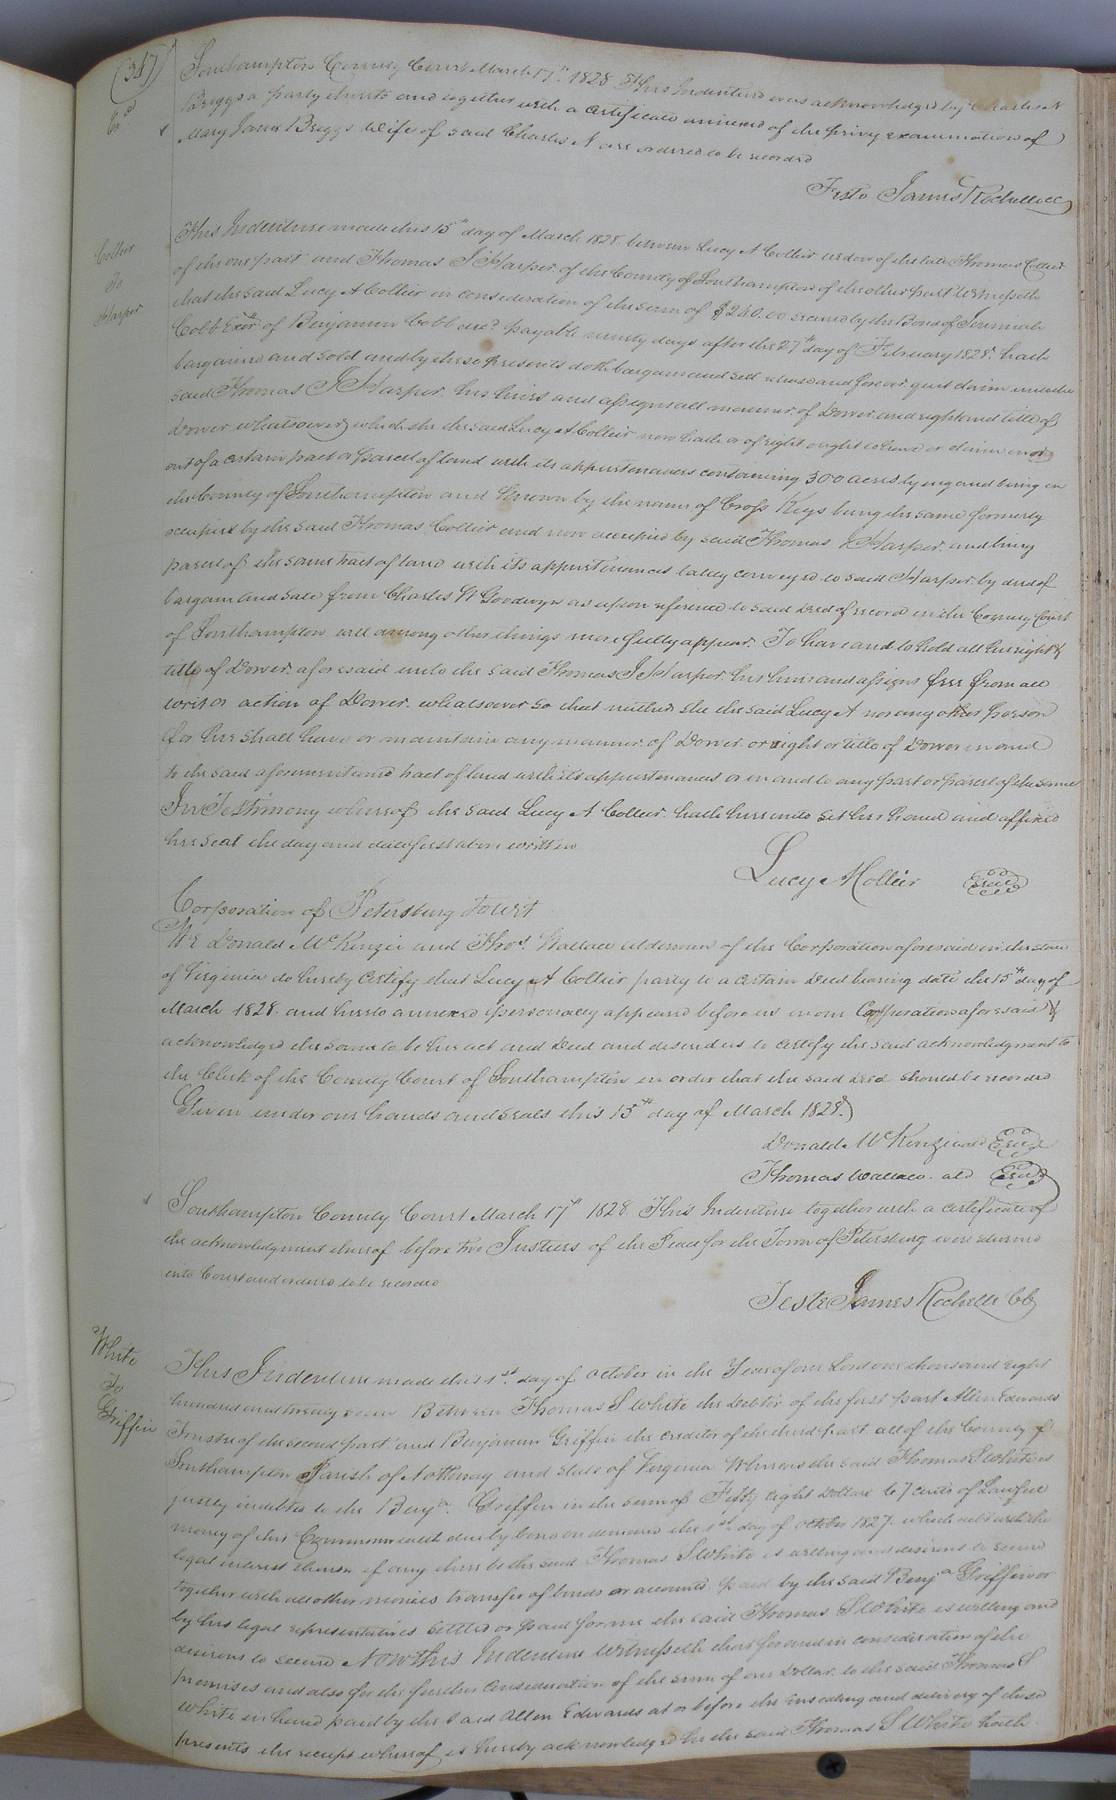 (347)
Exd
Southampton County Court March 17th 1828 This Indenture was acknowledged by Charles N
Briggs a party thereto and together with a certificate annexed of the privy examination of
Mary Jane Briggs Wife of said Charles N are ordered to be recorded
Teste James Rochelle CC
Collier
To
Harper
This Indenture made this 15th day of March 1828 between Lucy A Collier widow of the late Thomas Collier
of the one part and Thomas J Harper of the County of Southampton of the other part Witnesseth
that the said Lucy A Collier in consideration of the sum of $240.00 secured by the Bond of Jeremiah
Cobb Exor of Benjamin Cobb decd payable ninety days after the 27th day of February 1828 hath
bargained and sold and by these presents doth bargain and sell release and forever quit claim unto the
said Thomas J Harper his heirs and assigns all manner of Dower and right and title of
Dower whatsoever which she the said Lucy A Collier now hath or of right ought to have or claim in or
out of a certain tract or parcel of land with its appurtenances containing 300 acres lying and being in
the County of Southampton and known by the name of Cross Keys being the same formerly
occupied by the said Thomas Collier and now occupied by said Thomas J Harper and being
parcel of the same tract of land with its appurtenances lately conveyed to said Harper by deed of
bargain and sale from Charles W Goodwyn as upon reference to said deed of record in the County Court
of Southampton will among other things more fully appear. To have and to hold all her right &
title of Dower aforesaid unto the said Thomas J Harper his heirs and assigns free from all
writ or action of Dower whatsoever so that neither she the said Lucy A nor any other person
for her shall have or maintain any manner of Dower or right or title of Dower in and
to the said aforementioned tract of land with its appurtenances or in and to any part or parcel of the same
In Testimony whereof the said Lucy A Collier hath hereunto set her hand and affixed
her seal the day and date first above written
Lucy A Collier Seal
Corporation of Petersburg Towit
We Donald McKenzie and Thos. Wallace aldermen of the Corporation aforesaid in the state
of Virginia do hereby certify that Lucy A Collier party to a certain Deed bearing date the 15th day of
March 1828 and hereto annexed personally appeared before us in our Corporation aforesaid &
acknowledged the same to be her act and Deed and desired us to certify the said acknowledgment to
the Clerk of the County Court of Southampton in order that the said deed should be recorded
Given under our hands and seals this 15th day of March 1828.
Donald McKenzie ald Seal
Thomas Wallace ald Seal
Southampton County Court March 17th 1828 This Indenture together with a certificate of
the acknowledgment thereof before two Justices of the Peace for the Town of Petersburg were returned
into Court and ordered to be recorded
Teste James Rochelle CC
White
To
Griffin
This Indenture made this 1st. day of October in the Year of our Lord one thousand eight
hundred and twenty seven Between Thomas S White the debtor of the first part Allen Edwards
Trustee of the second part and Benjamin Griffin the creditor of the third part all of the County of
Southampton Parish of Nottoway and State of Virginia Whereas the said Thomas S White is
justly indebted to the Benja. Griffin in the sum of Fifty eight Dollars 67 cents of Lawful
money of this Commonwealth due by bond on demand the 1st day of October 1827. which debt with the
legal interest thereon if any there be the said Thomas S White is willing and desirous to secure
together with all other monies transfer of bonds or accounts paid by the said Benja Griffin or
by his legal representatives settled or paid for me the said Thomas S White is willing and
desirous to secure Now this Indenture Witnesseth that for and in consideration of the
premises and also for the further consideration of the sum of one Dollar to the said Thomas S
White in hand paid by the said Allen Edwards at or before the ensealing and delivery of these
presents the receipt whereof is hereby acknowledged he the said Thomas S White hath